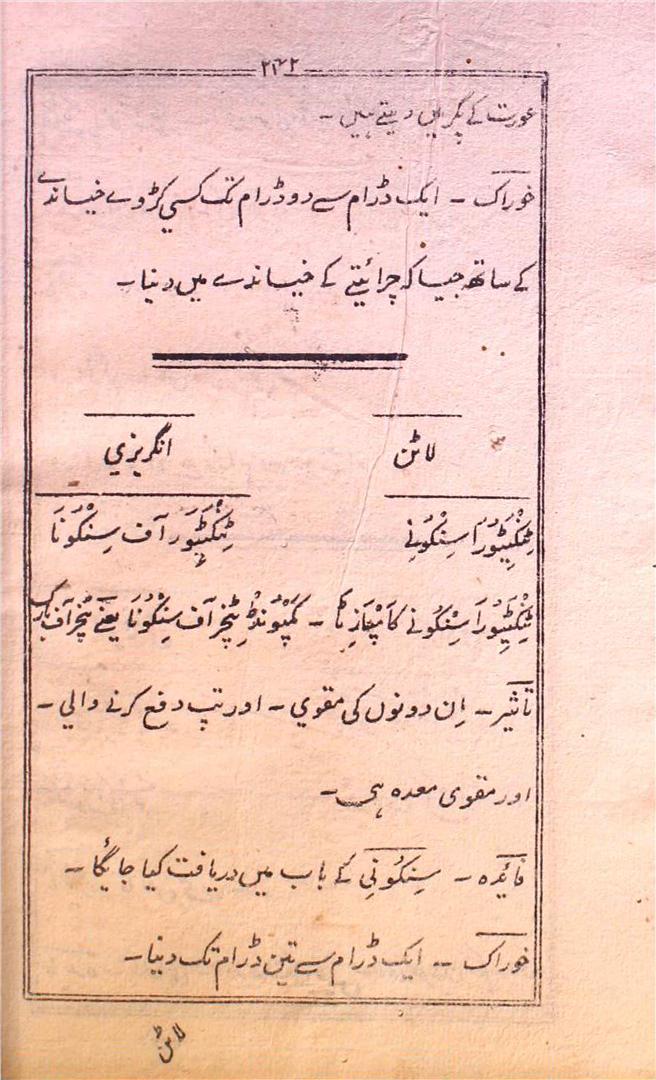 ۲۴۲
عورت کے پکر میں دیتے ہیں ۔
خوراک ۔ ایک ڈرام سے دو ڈرام تک کسي کڑوے خیساندے
کے ساتھ جیسا کہ چرائیتے کے خیساندے میں دینا ۔
لاٹن
انگریزي
ٹِنْکْٹِیُورَا سِنْکُونِے
ٹِنْکْٹِیُوَر آف سِنْکُونَا
ٹِنْکْٹِیُورَا سِنْکُونے کَامْپَازِیٹَا ۔ کَمْپَونْڈ ٹِنْچَر آف سِنْکُونَا یعنے ٹِنْچَر آف بَارک
تأثیر ۔ اِن دونوں کی مقوي ۔ اور تپ دفع کرنے والي ۔
اور مقوی معدہ ہی ۔
فائدہ ۔ سِنکُونِی کے باب میں دریافت کیا جائیگا ۔
خوراک ۔ ایک ڈرام سے تین ڈرام تک دینا ۔
لاٹن